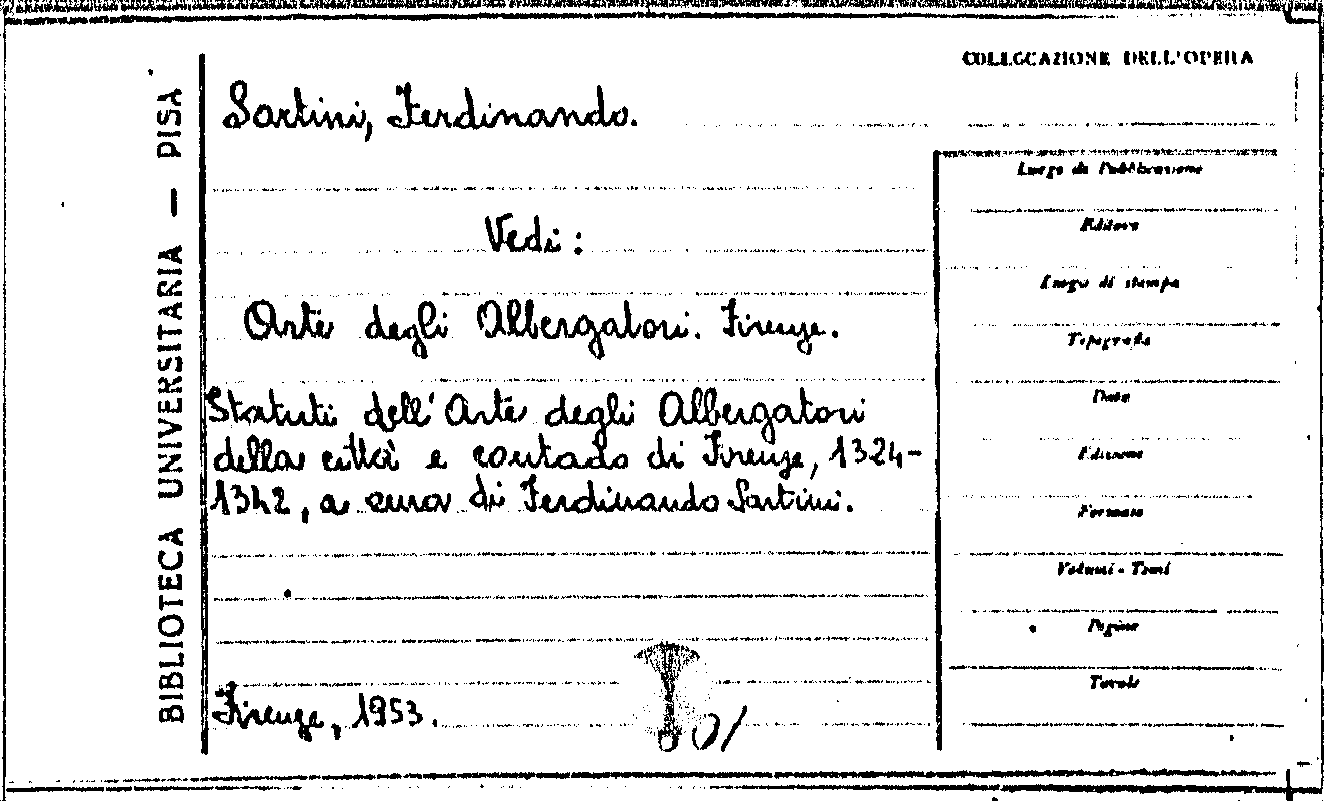 COLLOCAZIONE DELL'OPERA
BIBLIOTECA UNIVERSITARIA — PISA
Sartini, Ferdinando.
Vedi:
Arte degli Albergatori. Firenze.
Statuti dell'Arte degli Albergatori
della città e contado di Firenze, 1324-
1342, a cura di Ferdinando Sartini.
Firenze, 1953.
Luogo di Pubblicazione
Editore
Luogo di stampa
Topografia
Data
Edizione
Formato
Volumi - Tomi
Pagine
Tavole